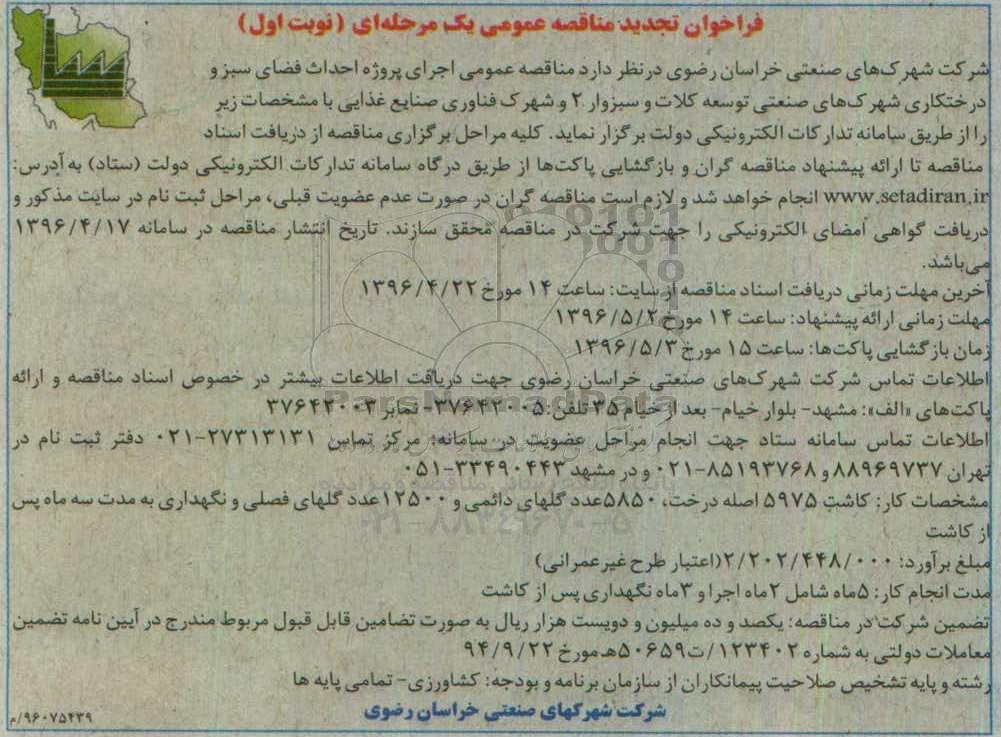 فراخوان تجدید مناقصه عمومی یک مرحله‌ای (نوبت اول)
شرکت شهرک‌های صنعتی خراسان رضوی درنظر دارد مناقصه عمومی اجرای پروژه احداث فضای سبز و
درختکاری شهرک‌های صنعتی توسعه کلات و سبزوار ۲ و شهرک فناوری صنایع غذایی با مشخصات زیر
را از طریق سامانه تدارکات الکترونیکی دولت برگزار نماید. کلیه مراحل برگزاری مناقصه از دریافت اسناد
مناقصه تا ارائه پیشنهاد مناقصه گران و بازگشایی پاکت‌ها از طریق درگاه سامانه تدارکات الکترونیکی دولت (ستاد) به آدرس:
www.setadiran.ir انجام خواهد شد و لازم است مناقصه گران در صورت عدم عضویت قبلی، مراحل ثبت نام در سایت مذکور و
دریافت گواهی امضای الکترونیکی را جهت شرکت در مناقصه محقق سازند. تاریخ انتشار مناقصه در سامانه ۱۳۹۶/۴/۱۷
می‌باشد.
آخرین مهلت زمانی دریافت اسناد مناقصه از سایت: ساعت ۱۴ مورخ ۱۳۹۶/۴/۲۲
مهلت زمانی ارائه پیشنهاد: ساعت ۱۴ مورخ ۱۳۹۶/۵/۲
زمان بازگشایی پاکت‌ها: ساعت ۱۵ مورخ ۱۳۹۶/۵/۳
اطلاعات تماس شرکت شهرک‌های صنعتی خراسان رضوی جهت دریافت اطلاعات بیشتر در خصوص اسناد مناقصه و ارائه
پاکت‌های «الف»: مشهد- بلوار خیام- بعد از خیام ۳۵ تلفن: ۳۷۶۴۲۰۰۵- نمابر ۳۷۶۴۲۰۰۳
اطلاعات تماس سامانه ستاد جهت انجام مراحل عضویت در سامانه: مرکز تماس ۲۷۳۱۳۱۳۱-۰۲۱ دفتر ثبت نام در
تهران ۸۸۹۶۹۷۳۷ و ۸۵۱۹۳۷۶۸-۰۲۱ و در مشهد ۳۳۴۹۰۴۴۳-۰۵۱
مشخصات کار: کاشت ۵۹۷۵ اصله درخت، ۵۸۵۰عدد گلهای دائمی و ۱۲۵۰۰عدد گلهای فصلی و نگهداری به مدت سه ماه پس
از کاشت
مبلغ برآورد: ۲/۲۰۲/۴۴۸/۰۰۰(اعتبار طرح غیرعمرانی)
مدت انجام کار: ۵ماه شامل ۲ماه اجرا و ۳ماه نگهداری پس از کاشت
تضمین شرکت در مناقصه: یکصد و ده میلیون و دویست هزار ریال به صورت تضامین قابل قبول مربوط مندرج در آیین نامه تضمین
معاملات دولتی به شماره ۱۲۳۴۰۲/ت۵۰۶۵۹هـ مورخ ۹۴/۹/۲۲
رشته و پایه تشخیص صلاحیت پیمانکاران از سازمان برنامه و بودجه: کشاورزی- تمامی پایه ها
شرکت شهرکهای صنعتی خراسان رضوی
۹۶۰۷۵۴۳۹/م
ParsNamadData
۰۲۱-۸۸۳۴۹۶۷۰-۵